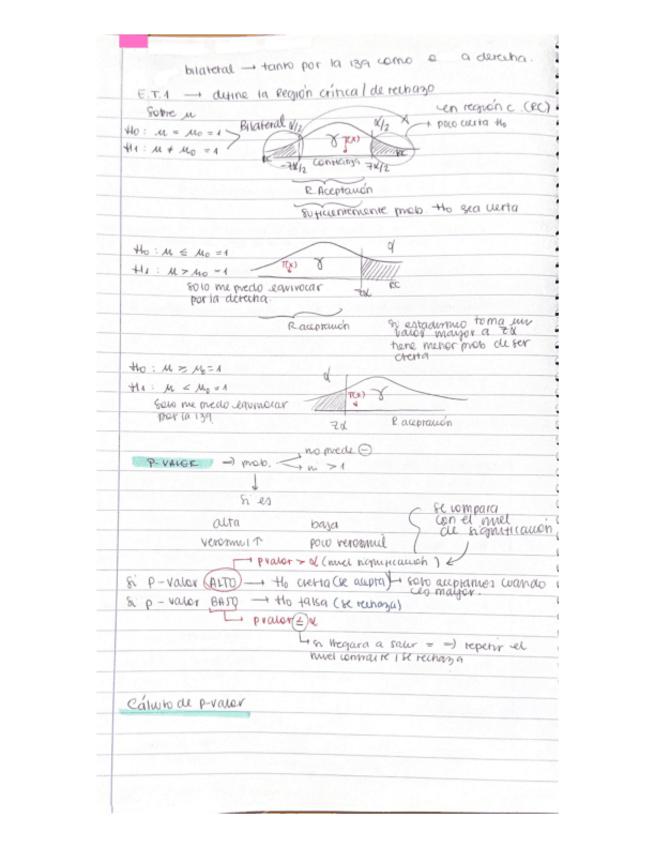 bilateral → tanto por la izq como e a derecha.
E.T.1 → define la Región crítica / de rechazo
Sobre μ
H0: μ = μ0 = 1
H1: μ ≠ μ0 = 1
Bilateral α/2 α/2
γ T(x)
RC confianza RC
-zα/2 zα/2
en región c (RC)
→ poco cierta H0
R Aceptación
Suficientemente prob H0 sea cierta
H0: μ ≤ μ0 = 1
H1: μ > μ0 = 1
solo me puedo equivocar
por la derecha
T(x) γ α
RC
zα
R aceptación
si estadístico toma un
valor mayor a zα
tiene menor prob de ser
cierta
H0: μ ≥ μ0 = 1
H1: μ < μ0 = 1
Solo me puedo equivocar
por la izq
α T(x) γ
zα R aceptación
P-VALOR → prob. no puede ⊖
ni > 1
Si es
alta baja
verosímil ↑ poco verosímil
se compara
con el nivel
de significación
→ pvalor > α (nivel significación)
Si p-valor ALTO → H0 cierta (se acepta) → solo aceptamos cuando
es mayor.
Si p-valor BAJO → H0 falsa (se rechaza)
→ pvalor ≤ α
→ si llegara a salir = ⇒ repetir el
nivel / se rechaza
Cálculo de p-valor